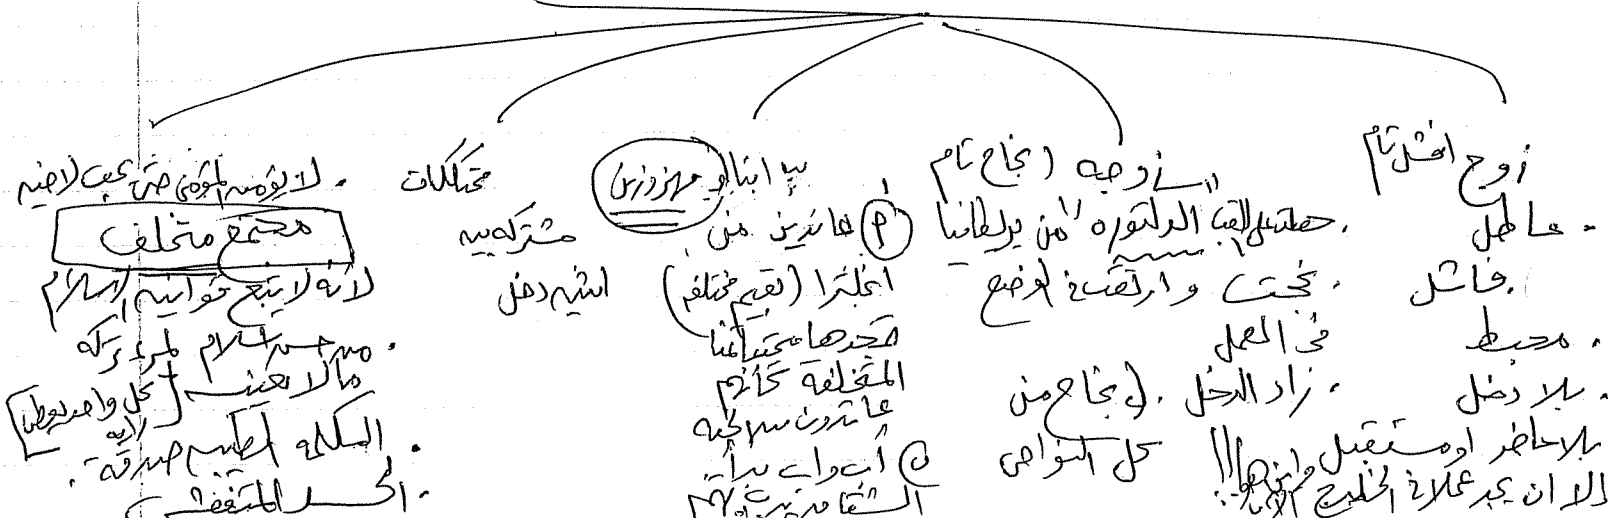 زوج (فشل تام
. عاطل
. فاشل
. محبط
. بلا دخل
بلا حاضر او مستقبل
إلا ان يجد عملا في الخليج
زوجه (نجاح تام
. حصلت على لقب الدكتوره من بريطانيا
. نجحت وارتقت في الوضع
في العمل
. زاد الدخل
. نجاح من
كل النواحي
ابناء مهزوزين
(أ) عائدين من
انجلترا (بقيم مختلفه)
المتخلفة
عائدون
(ب) أب وأب
ممتلكات
مشتركه بين
اثنين دخل
. لا يؤمن المؤمن حتى يحب لاخيه
مجتمع متخلف
لأنه لا يتبع قوانين الاسلام
. من حسن اسلام المرء تركه
ما لا يعنيه [كل واحد يعطينا
رأيه]
. الكلمه الطيبه صدقة.
. الحسد المتفشي